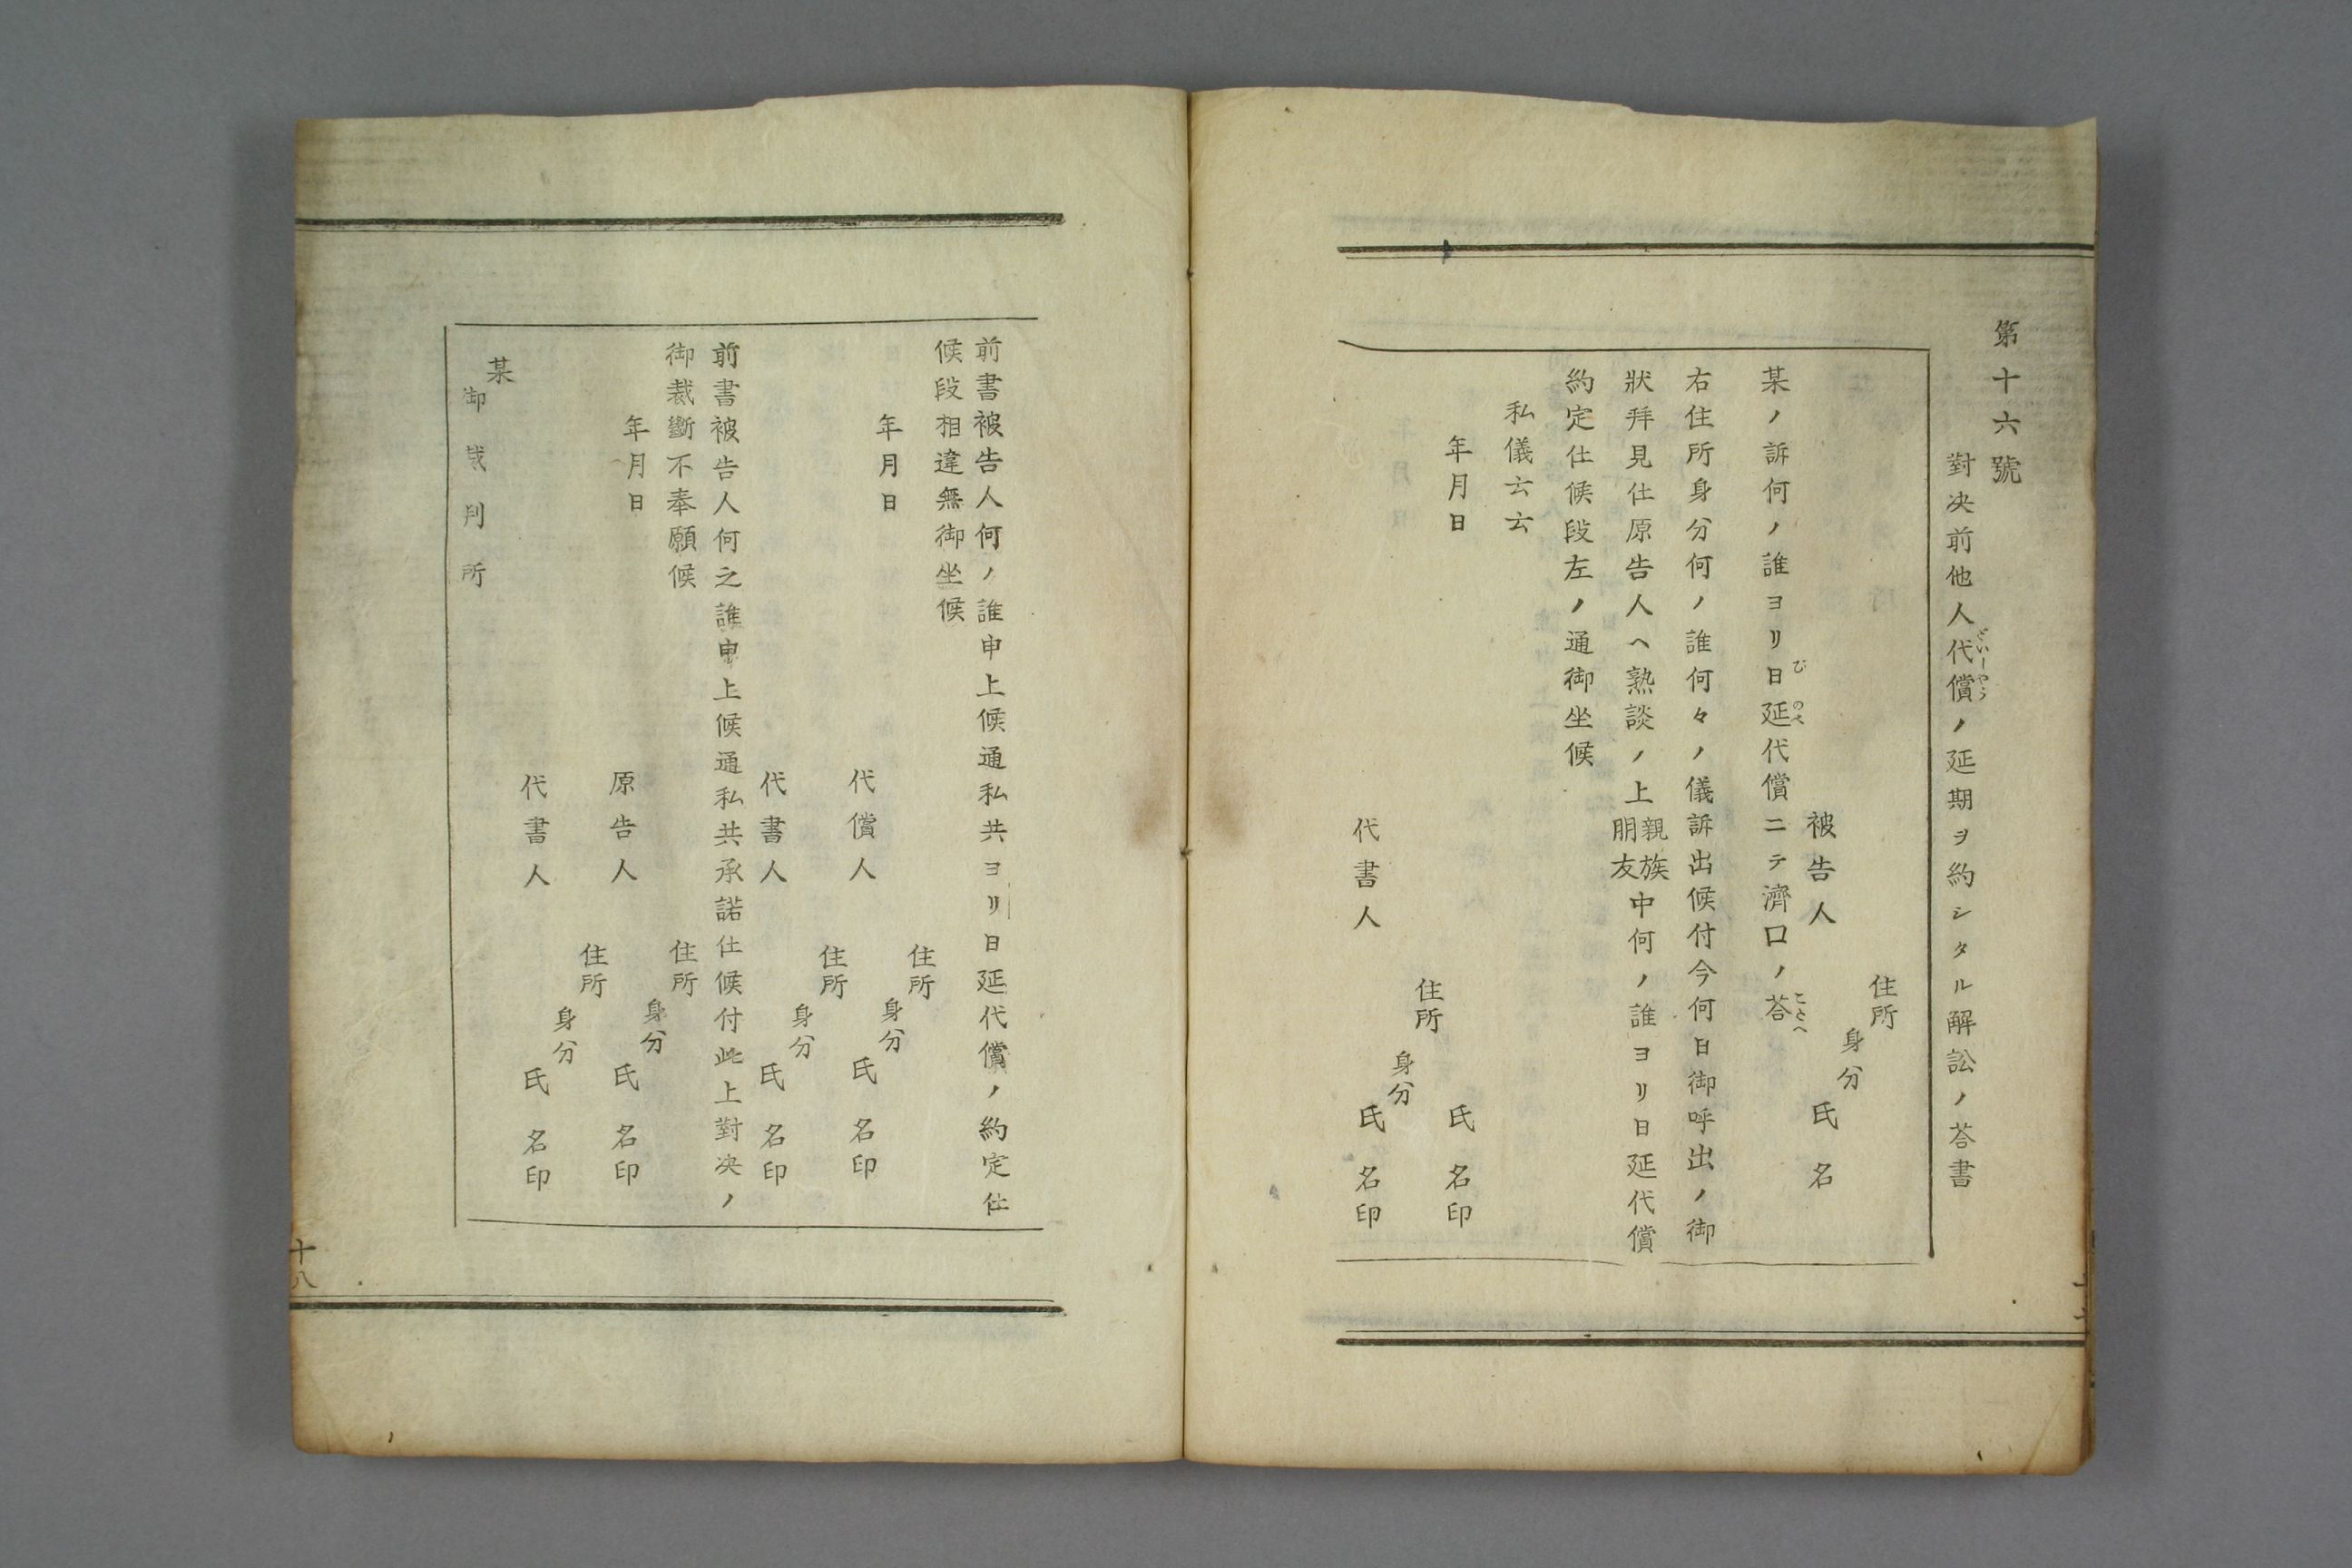 第十六號
對決前他人代償ノ延期ヲ約シタル解訟ノ荅書
だいしやう
住所
身分
被告人 氏名
某ノ訴何ノ誰ヨリ日延代償ニテ濟口ノ荅
び のべ こたへ
右住所身分何ノ誰何々ノ儀訴出候付今何日御呼出ノ御
狀拜見仕原告人ヘ熟談ノ上親族朋友中何ノ誰ヨリ日延代償
約定仕候段左ノ通御坐候
私儀云云
年月日
氏名印
住所
身分
代書人 氏名印
前書被告人何ノ誰申上候通私共ヨリ日延代償ノ約定仕
候段相違無御坐候
住所
年月日
身分
代償人 氏名印
住所
身分
代書人 氏名印
前書被告人何之誰申上候通私共承諾仕候付此上對決ノ
御裁斷不奉願候
住所
年月日
身分
原告人 氏名印
住所
身分
代書人 氏名印
某
御裁判所
十八